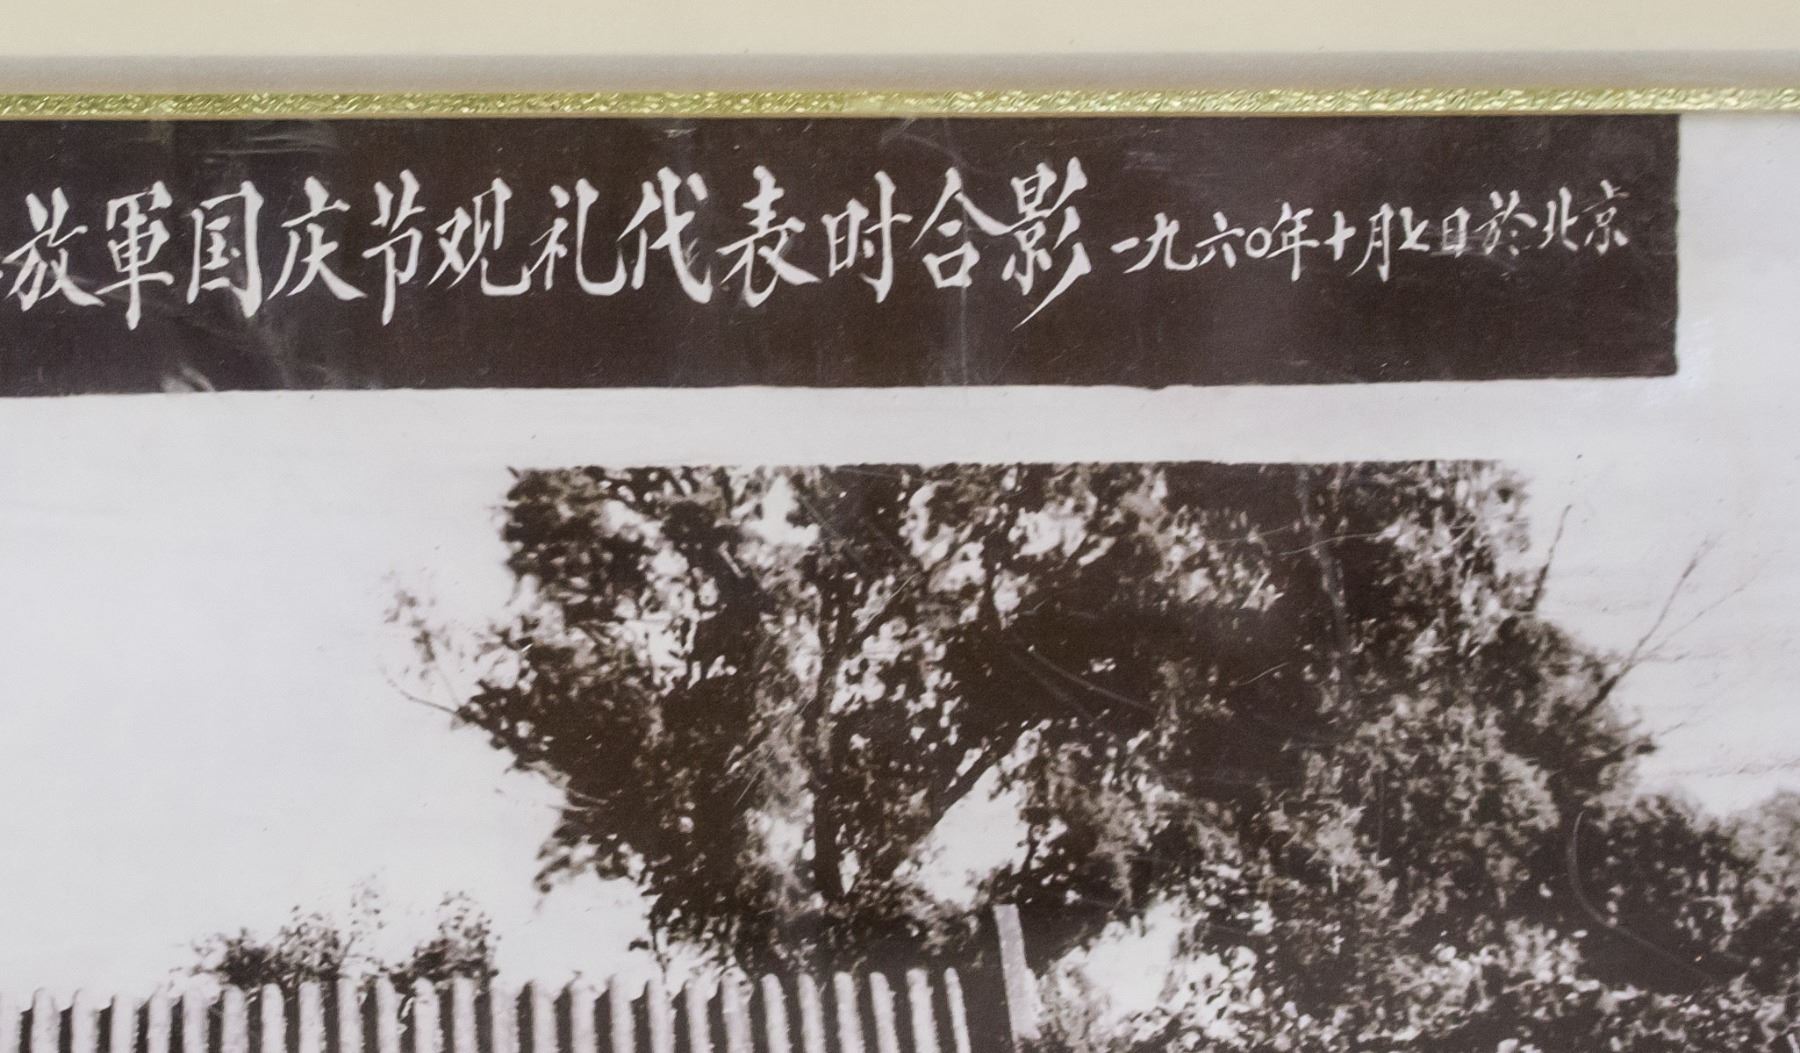 放軍国庆节观礼代表时合影 一九六〇年十月七日於北京